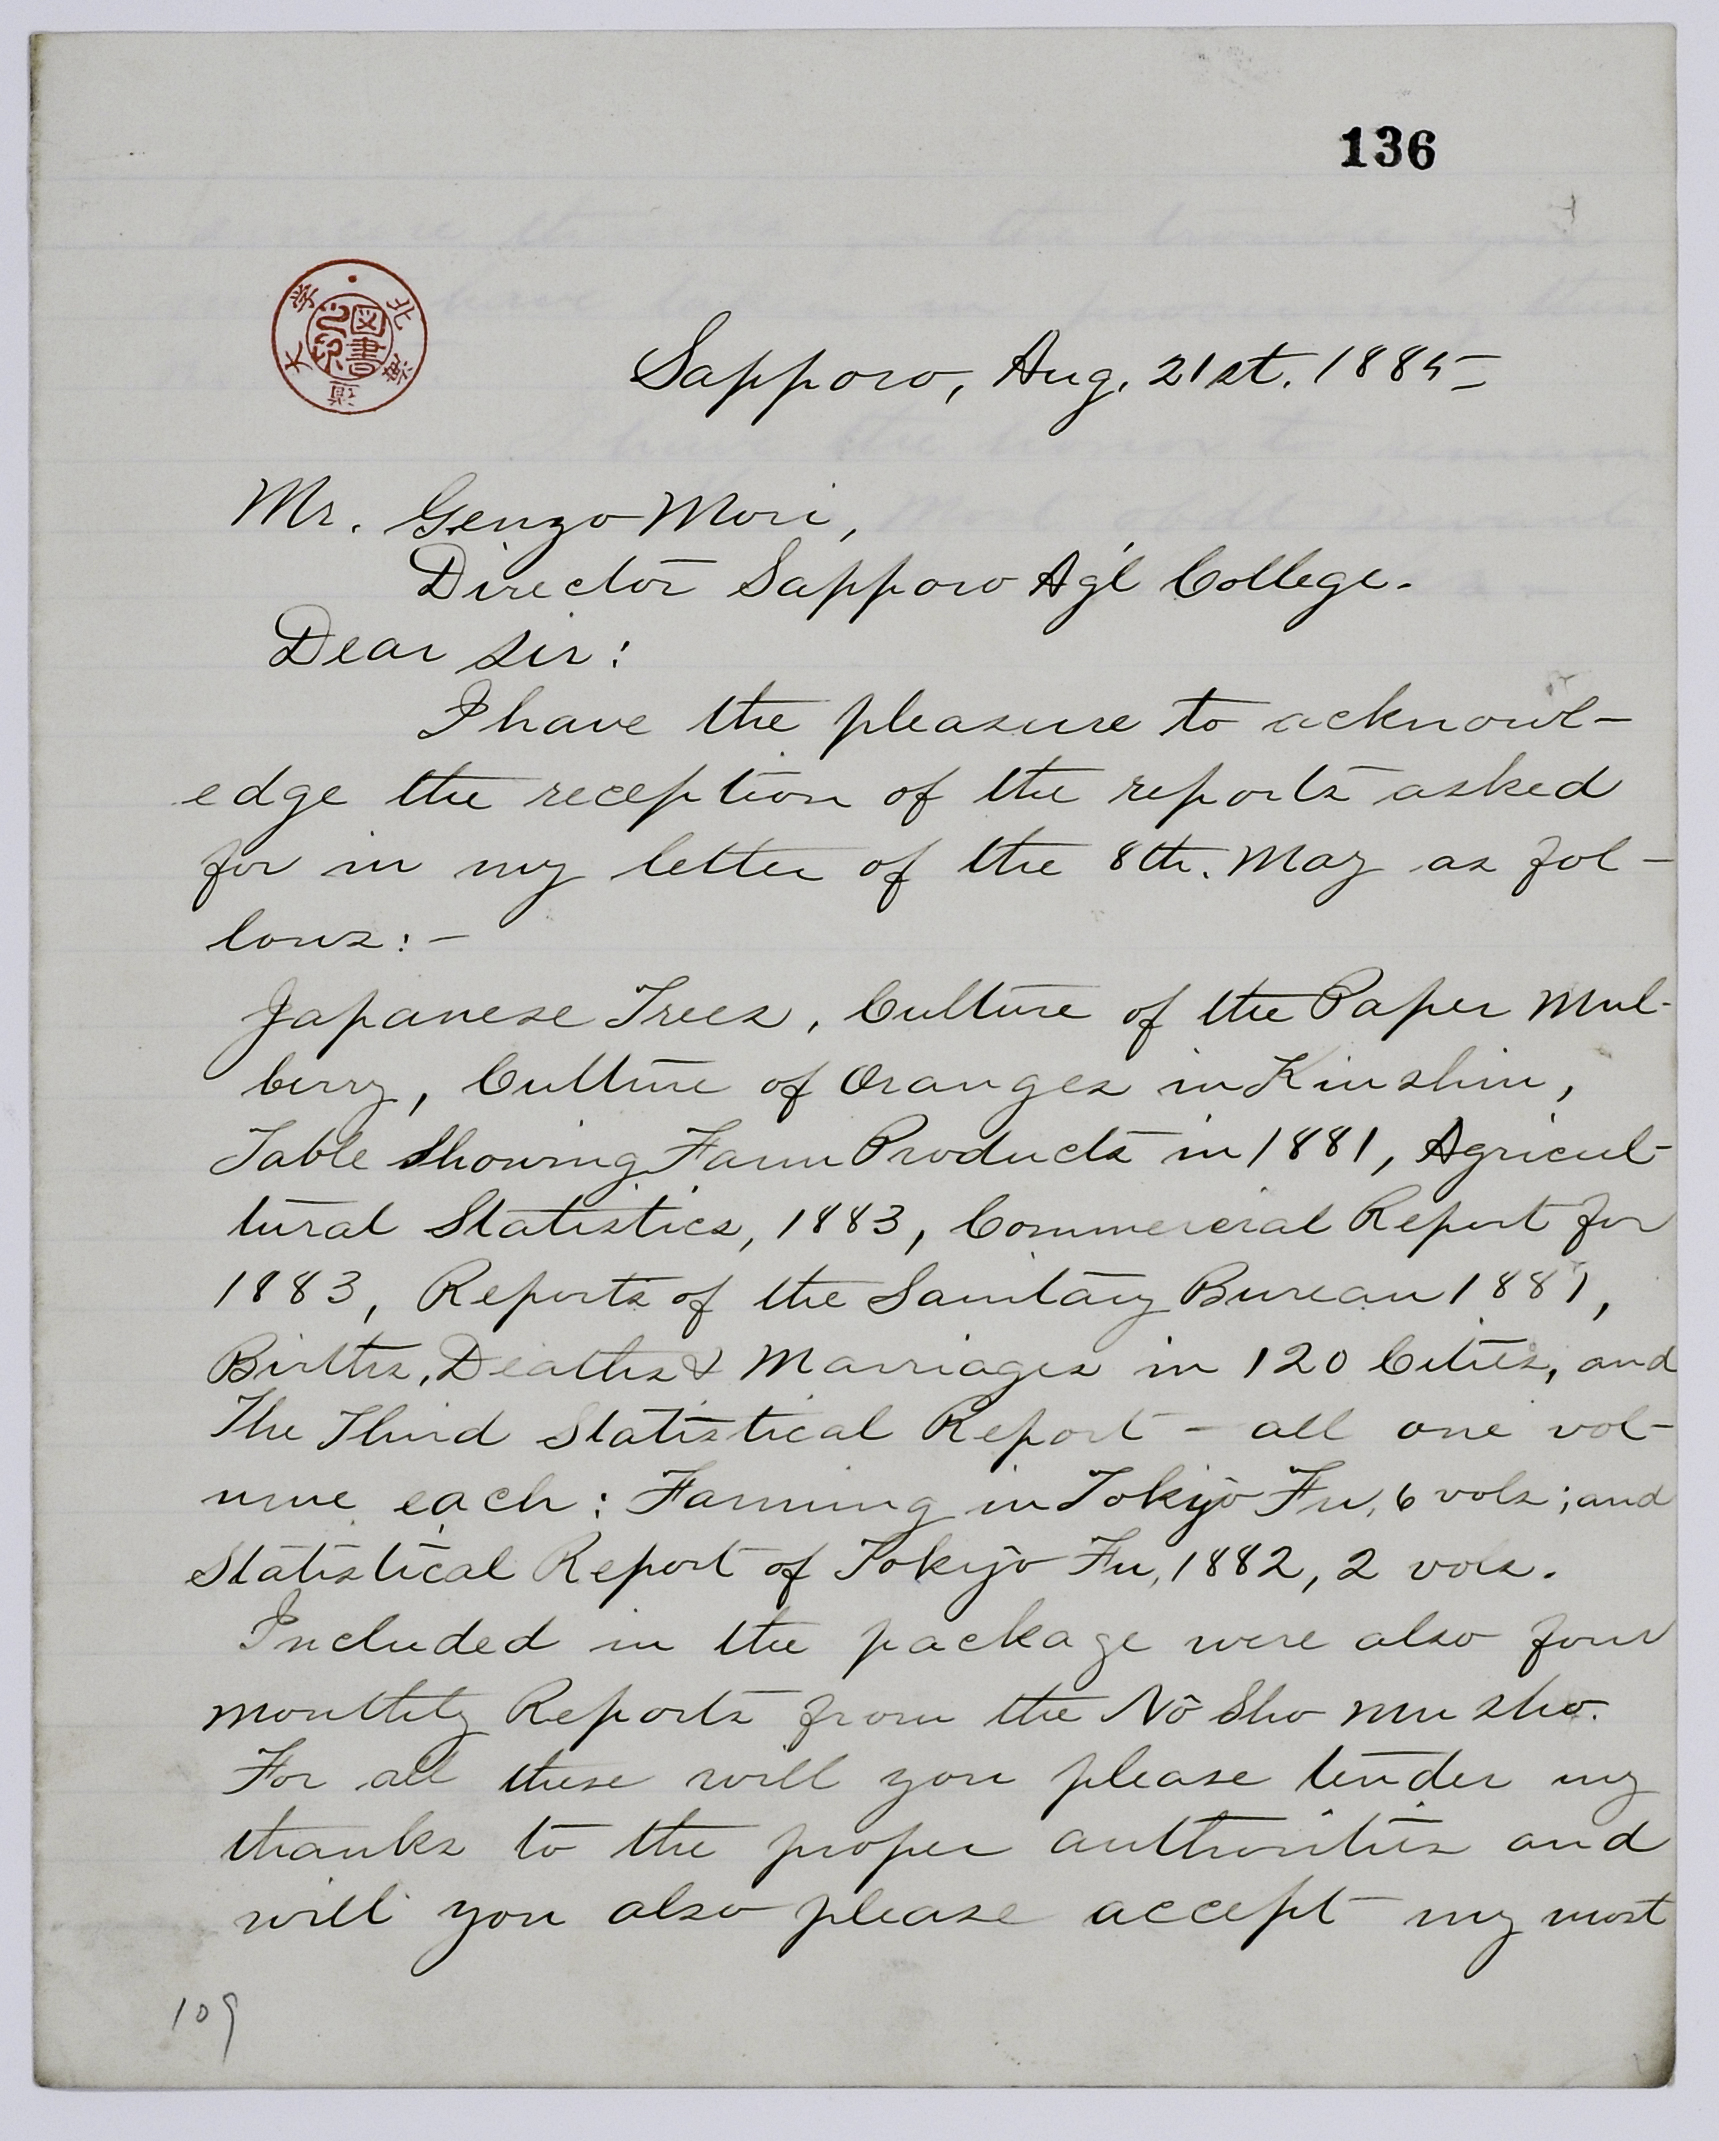 136
北海道帝国大学
図書之印
Sapporo, Aug. 21st. 1885
Mr. Genzo Mori,
Director Sapporo Agl College.
Dear Sir:
I have the pleasure to acknowl-
edge the reception of the reports asked
for in my letter of the 8th. May as fol-
lows:-
Japanese Trees, Culture of the Paper Mul-
berry, Culture of Oranges in Kiushiu,
Table Showing Farm Products in 1881, Agricul-
tural Statistics, 1883, Commercial Report for
1883, Reports of the Sanitary Bureau 1881,
Births, Deaths & Marriages in 120 Cities, and
The Third Statistical Report - all one vol-
ume each: Farming in Tokiyo Fu, 6 vols; and
Statistical Report of Tokiyo Fu, 1882, 2 vols.
Included in the package were also four
monthly Reports from the Nō Sho mu sho.
For all these will you please tender my
thanks to the proper authorities and
will you also please accept my most
109